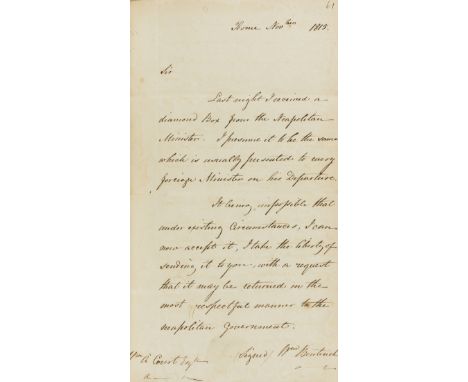 61
Rome Nov<sup>ber</sup> 1815.
Sir
Last night I received a
diamond Box from the Neapolitan
Minister. I presume it to be the same
which is usually presented to every
foreign Minister on his Departure.
It being impossible that
under existing Circumstances, I can
now accept it, I take the liberty of
sending it to you, with a request
that it may be returned in the
most respectful manner to the
neapolitan government.
(Signed) Wm Bentinck
A Court Esqre